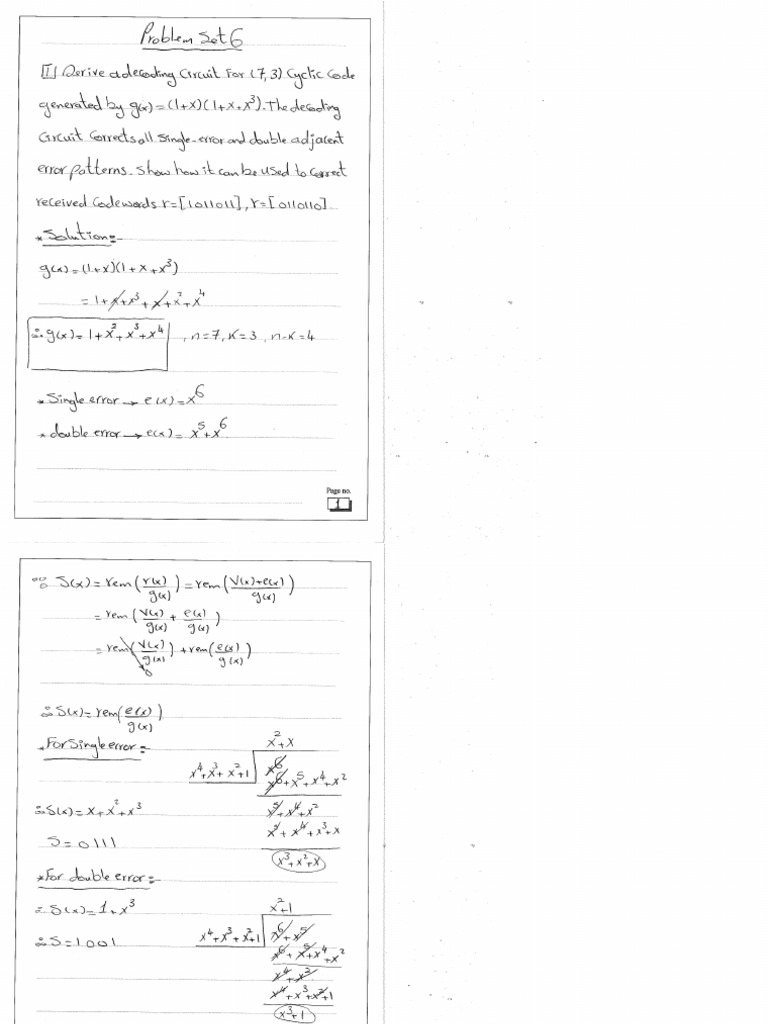 Problem Set 6
[1] Derive a decoding Circuit For (7,3) Cyclic Code
generated by g(x)=(1+x)(1+x+x³). The decoding
Circuit Corrects all Single-error and double adjacent
error patterns. Show how it can be used to Correct
received Codewords r=[1011011], r=[0110110]
* Solution:-
g(x)=(1+x)(1+x+x³)
=1+x+x³+x+x²+x⁴
∴g(x)=1+x²+x³+x⁴ , n=7, K=3, n-K=4
* Single error → e(x)=x⁶
* double error → e(x)= x⁵+x⁶
Page no.
1
∵ S(x)=rem(r(x)/g(x))=rem((V(x)+e(x))/g(x))
=rem(V(x)/g(x) + e(x)/g(x))
=rem(V(x)/g(x))+rem(e(x)/g(x))
0
∴S(x)=rem(e(x)/g(x))
* For Single error:-
x²+x
x⁴+x³+x²+1
x⁶
x⁶+x⁵+x⁴+x²
∴S(x)=x+x²+x³
x⁵+x⁴+x²
x⁵+x⁴+x³+x
S=0111
x³+x²+x
* For double error:-
∴S(x)=1+x³
x²+1
∴S=1001
x⁴+x³+x²+1
x⁶+x⁵
x⁶+x⁵+x⁴+x²
x⁴+x²
x⁴+x³+x²+1
x³+1